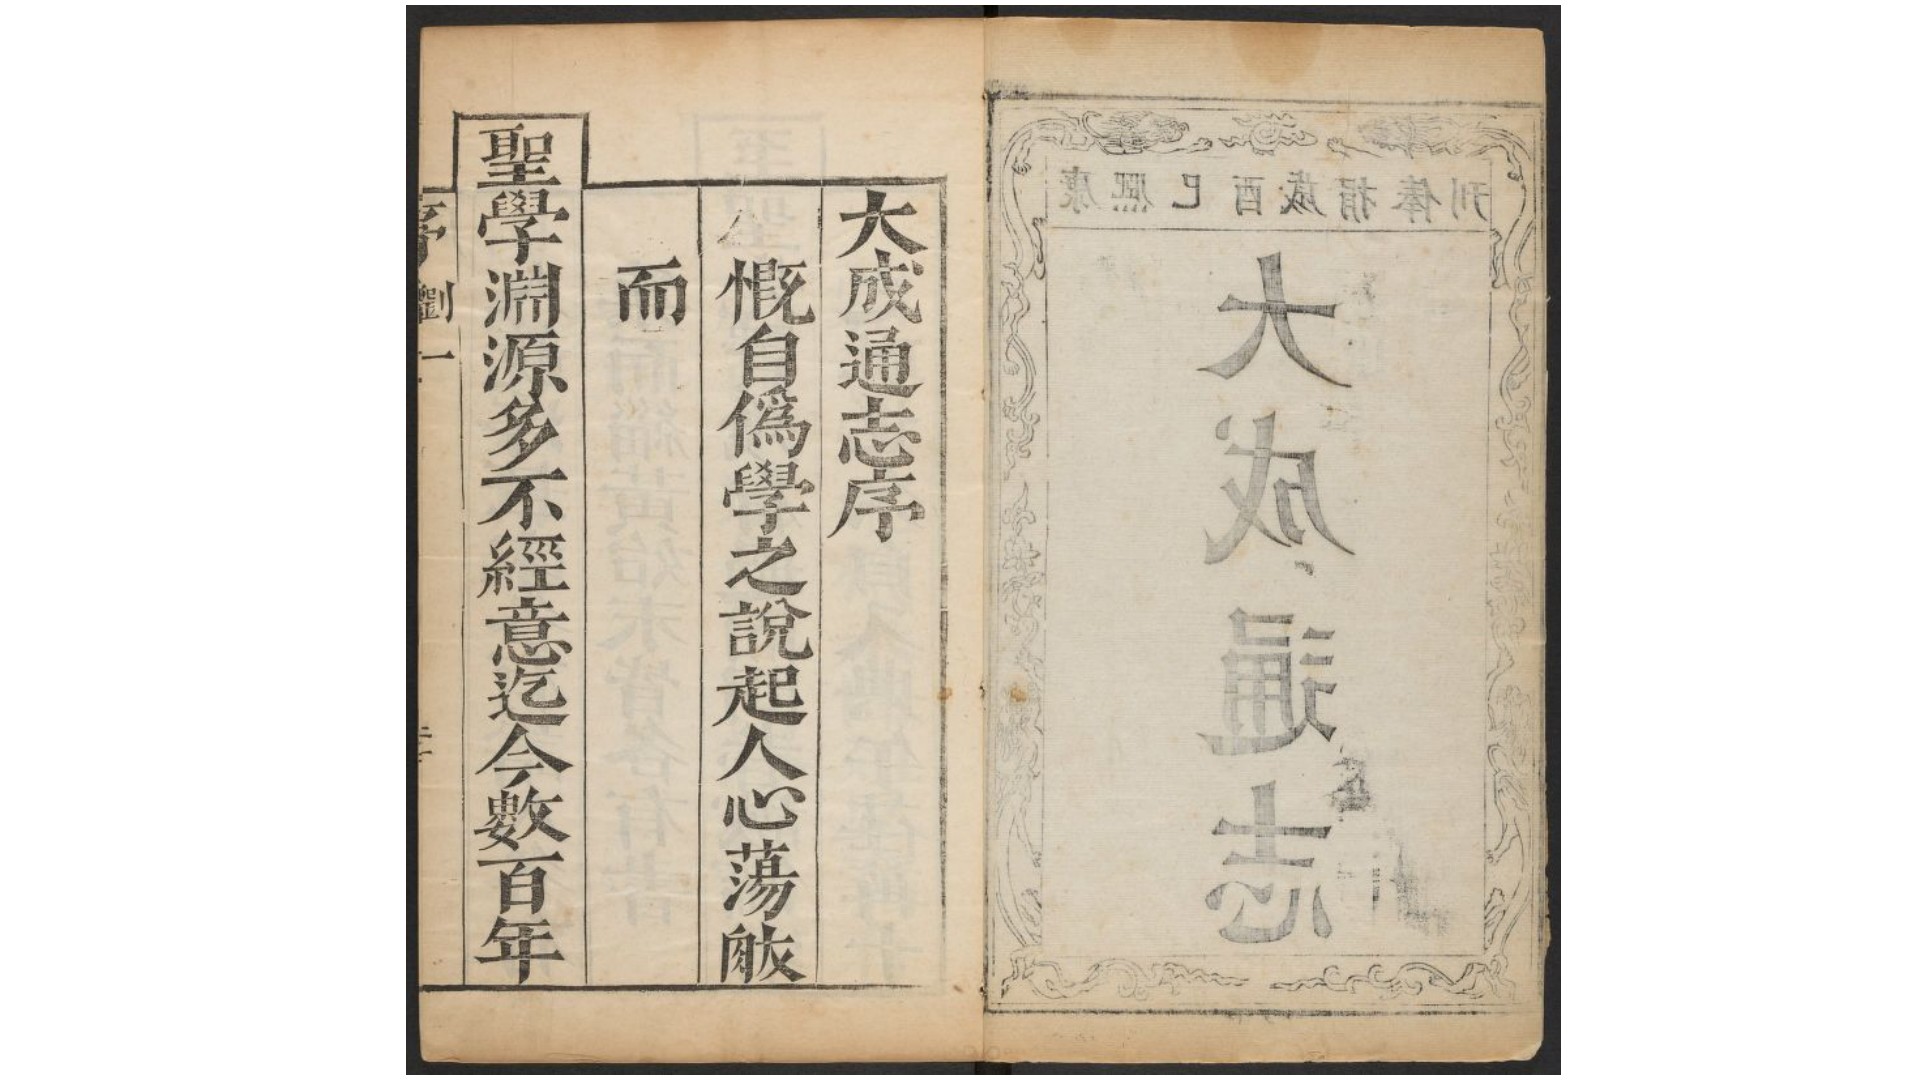 康熙己酉歲捐俸刊
大成通志
大成通志序
慨自僞學之說起人心蕩㪚
而
聖學淵源多不經意迄今數百年
序 劉一